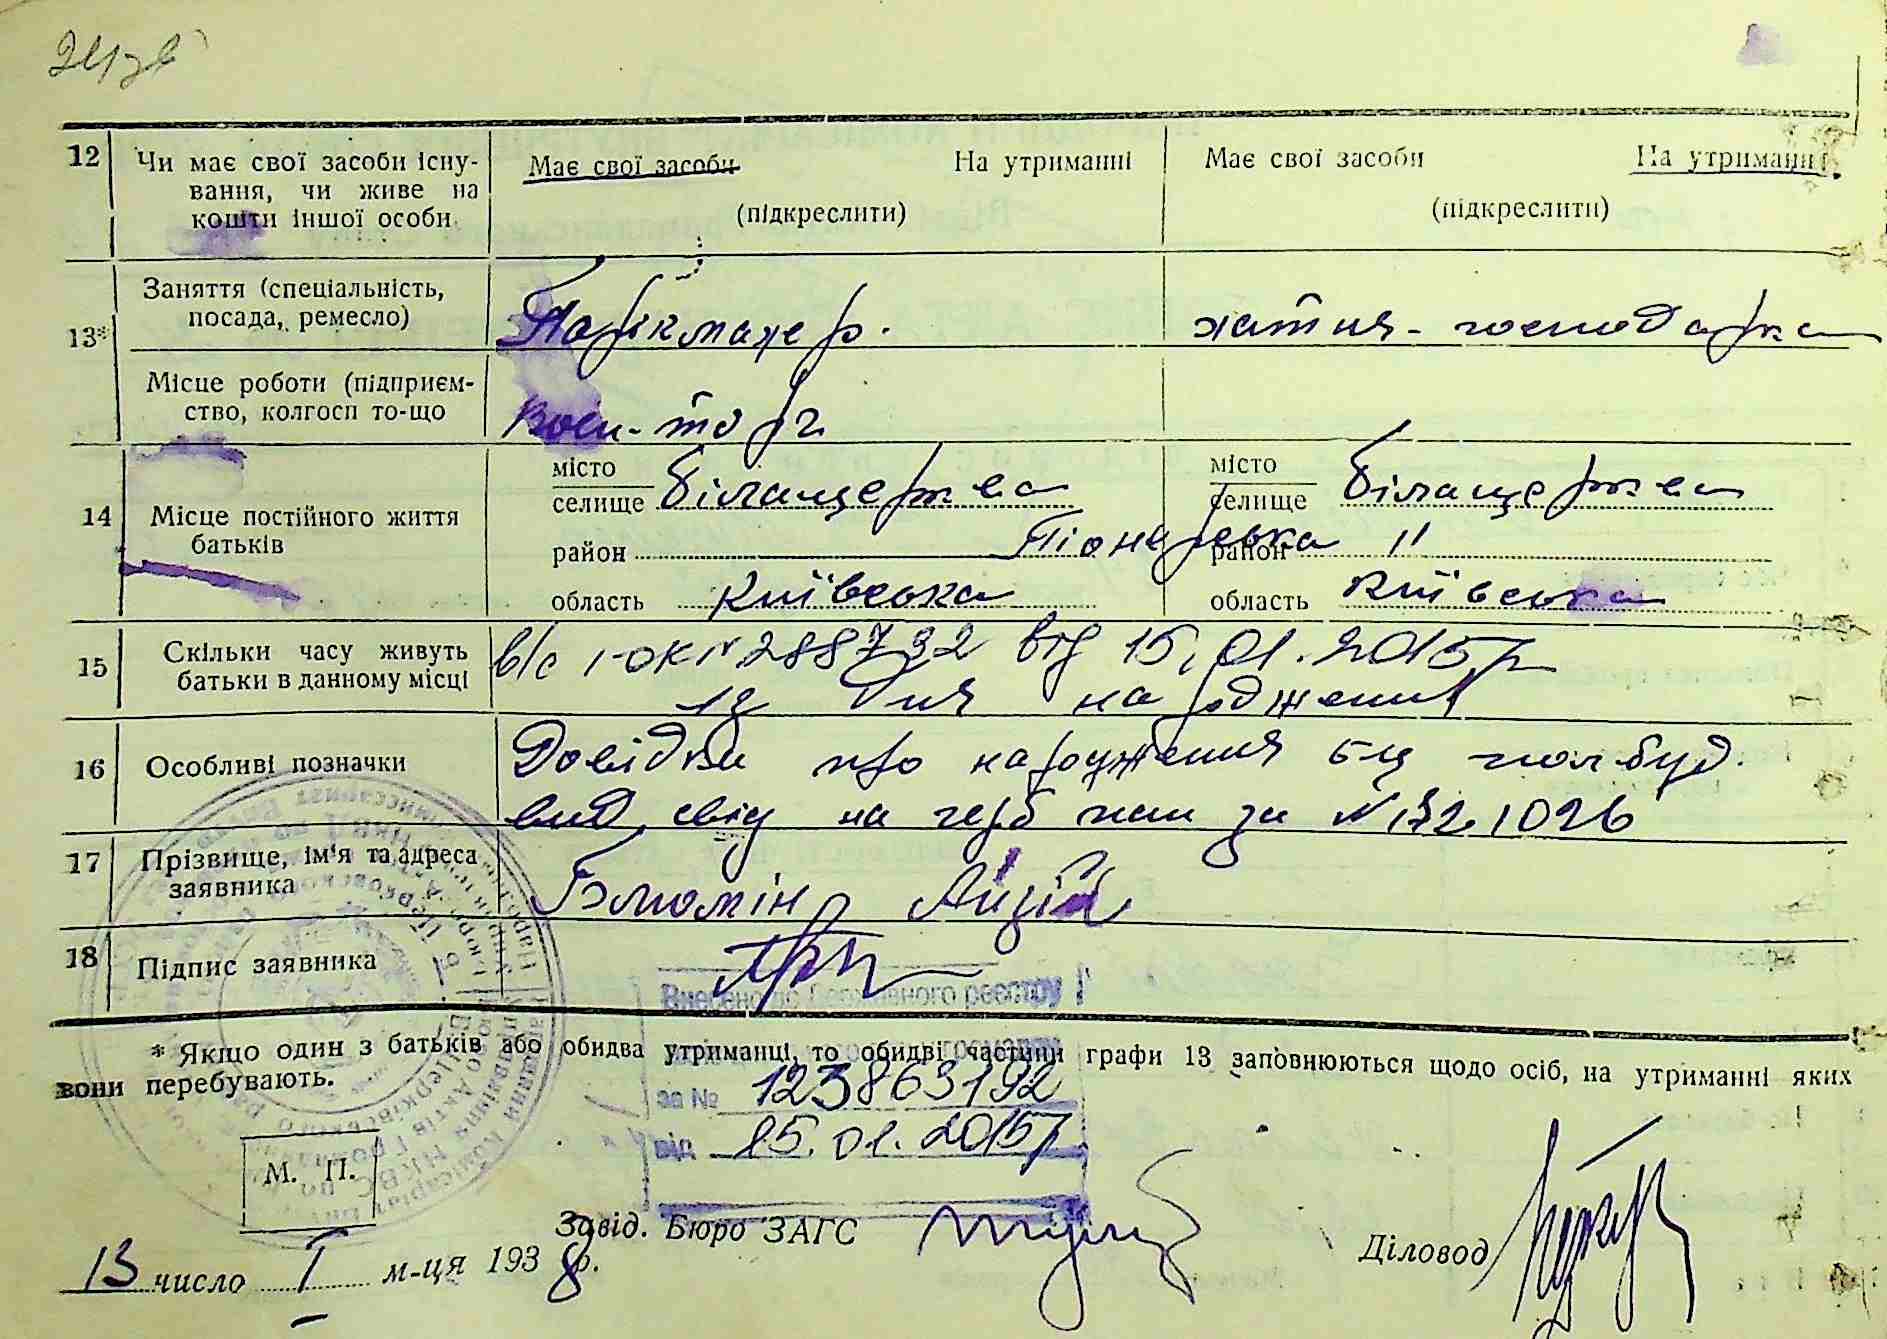 12 Чи має свої засоби існування, чи живе на кошти іншої особи
Має свої засоби На утриманні
(підкреслити)
Має свої засоби На утриманні
(підкреслити)
13* Заняття (спеціальність, посада, ремесло)
Парікмахер. хатня-господарка
Місце роботи (підприємство, колгосп то-що)
Воєн-торг
14 Місце постійного життя батьків
місто
селище Білацерква
район Піонерська
область Київська
місто
селище Білацерква
район "
область Київська
15 Скільки часу живуть батьки в данному місці
в/с І-ОК № 288732 від 15.01.2015р
із дня народження
16 Особливі позначки
Довідки про народження
свід на герб
17 Прізвище, ім'я та адреса заявника
18 Підпис заявника
Внесено до Державного реєстру
за № 123863192
від 15.01.2015р
* Якщо один з батьків або обидва утриманці, то обидві частини графи 13 заповнюються щодо осіб, на утриманні яких
вони перебувають.
М. П.
Завід. Бюро ЗАГС
Діловод
13 число I м-ця 1938 р.